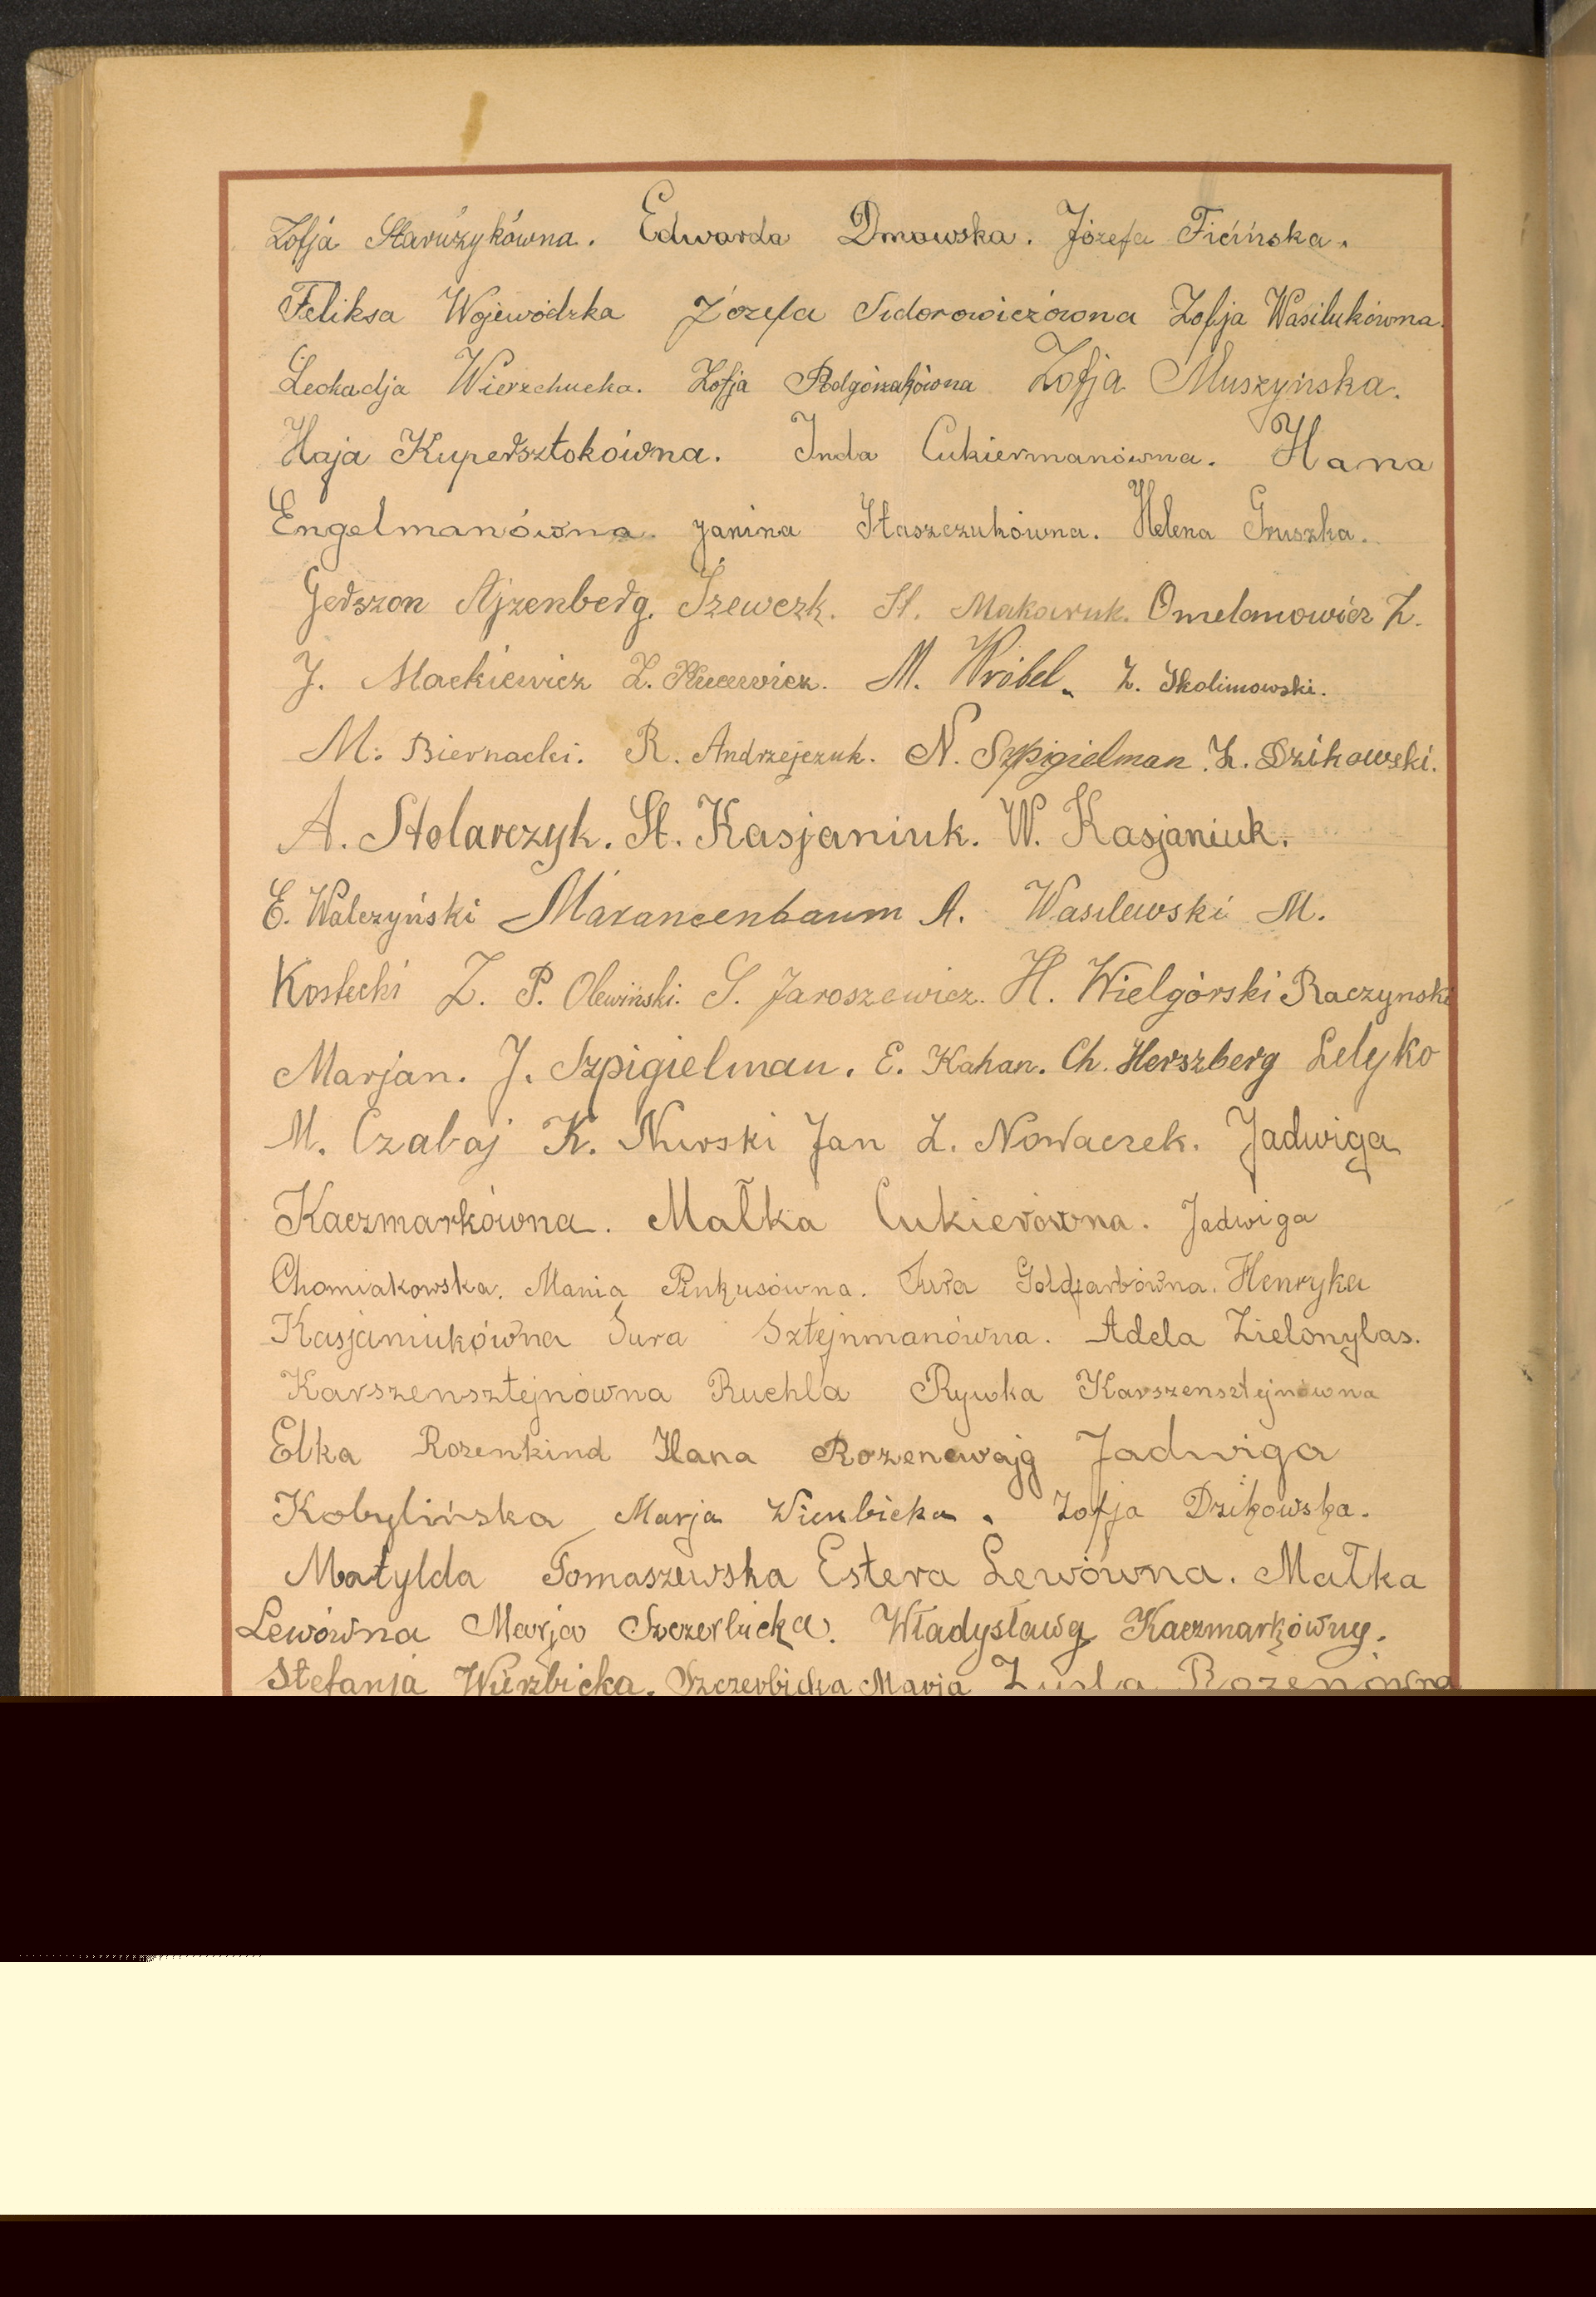 Zofja Staružykówna. Edwarda Dmowska. Józefa Ficińska.
Feliksa Wojewódzka Józefa Sidorowiczówna Zofja Wasilukówna.
Leokadja Wierzchucka. Zofja Podgórzakówna Zofja Muszyńska.
Haja Kupersztokówna. Inda Cukiermanówna. Hana
Engelmanówna. Janina Staszczukówna. Helena Gruszka.
Gerszon Ajzenberg. Szewczk. St. Makaruk. Omelanowicz Z.
J. Mackiewicz Z. M. Wróbel. Z. Skolimowski.
M. Biernacki. R. Andrzejczuk. N. Szpigielman. Z. Dzikowski.
A. Stolarczyk. St. Kasjaniuk. W. Kasjaniuk.
E. Walczyński Marancenbaum A. Wasilewski M.
Kostecki Z. P. Olewiński. S. Jaroszewicz. H. Wielgórski Raczynski
Marjan. J. Szpigielman. E. Kahan. Ch. Herszberg Lelyko
M. Czabaj K. Nurski Jan Z. Nowaczek. Jadwiga
Kaczmarkówna. Małka Cukierówna. Jadwiga
Chomiakowska. Mania Pinkusówna. Sura Goldfarbówna. Henryka
Kasjaniukówna Sura Sztejnmanówna. Adela Zielonylas.
Karszensztejnówna Ruchla Rywka Karszensztejnówna
Elka Rozenkind Hana Rozencwajg Jadwiga
Kobylińska Marja Wierzbicka. Zofja Dzikowska.
Matylda Tomaszewska Estera Lewówna. Małka
Lewówna Marja Szczerbicka. Władysława Kaczmarkówny.
Stefanja Wierzbicka. Szczerbicka Marja Rozenówna